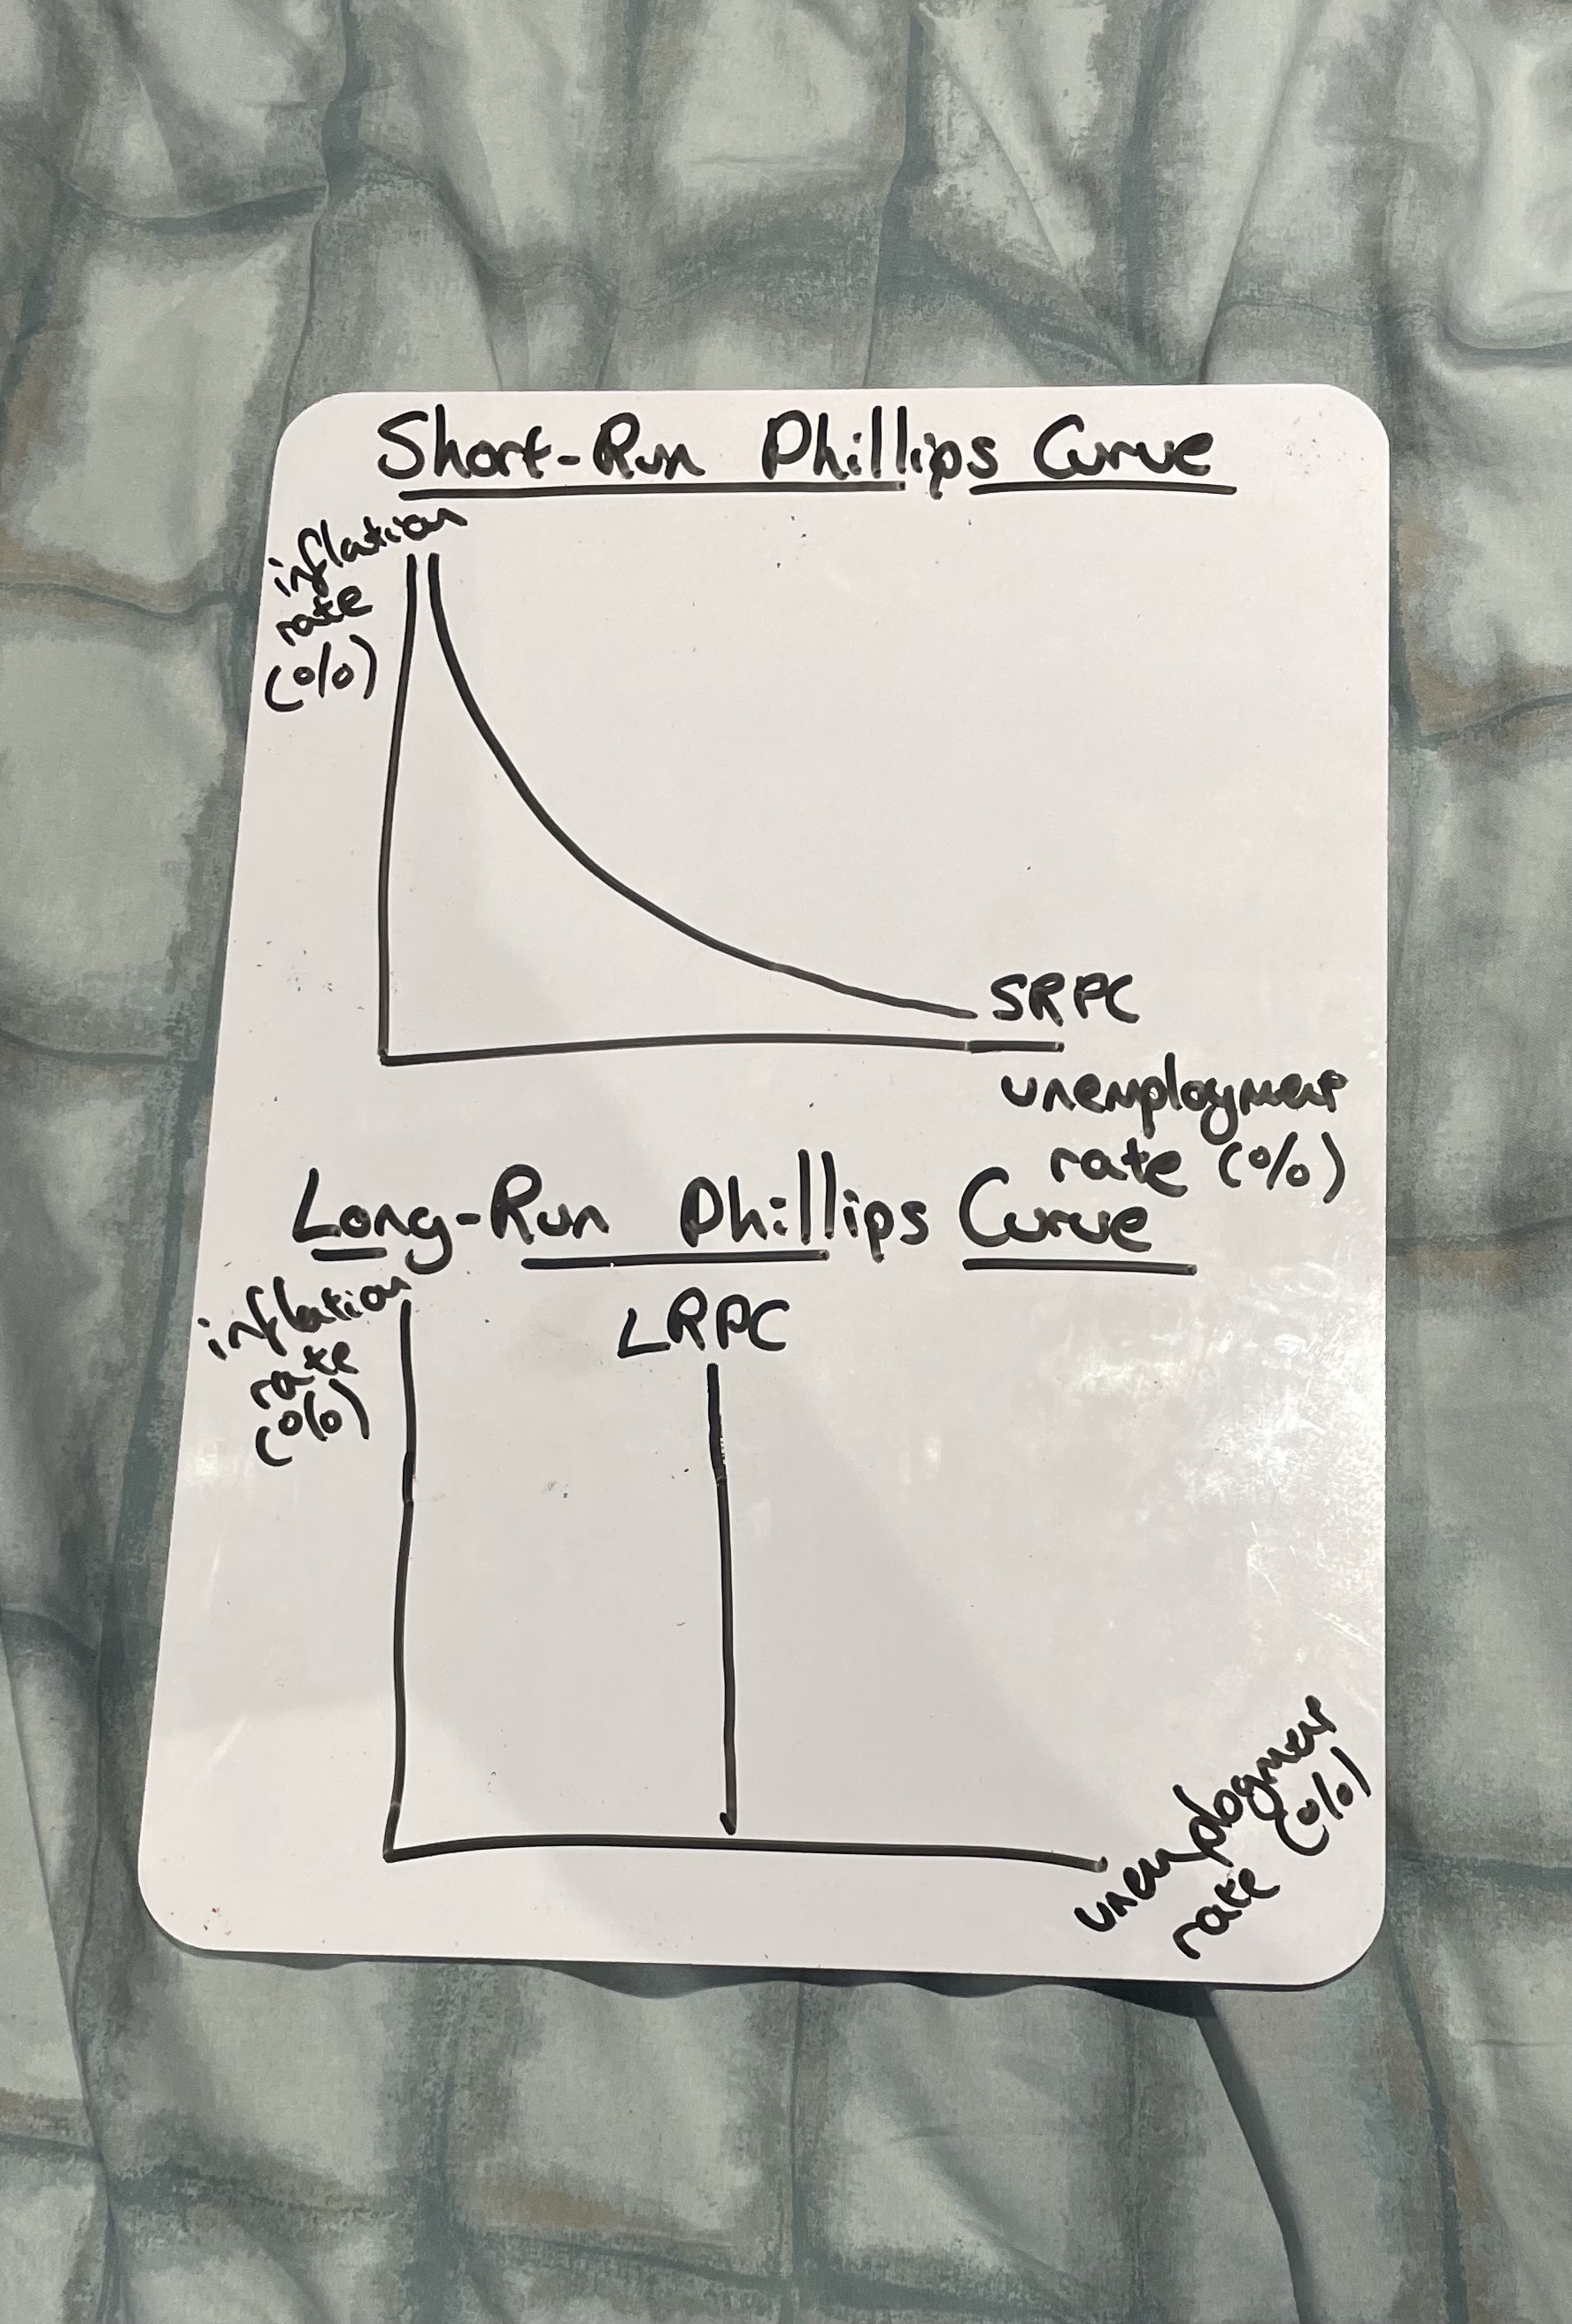 Short-Run Phillips Curve
inflation
rate
(%)
SRPC
unemployment
rate (%)
Long-Run Phillips Curve
inflation
rate
(%)
LRPC
unemployment
rate (%)